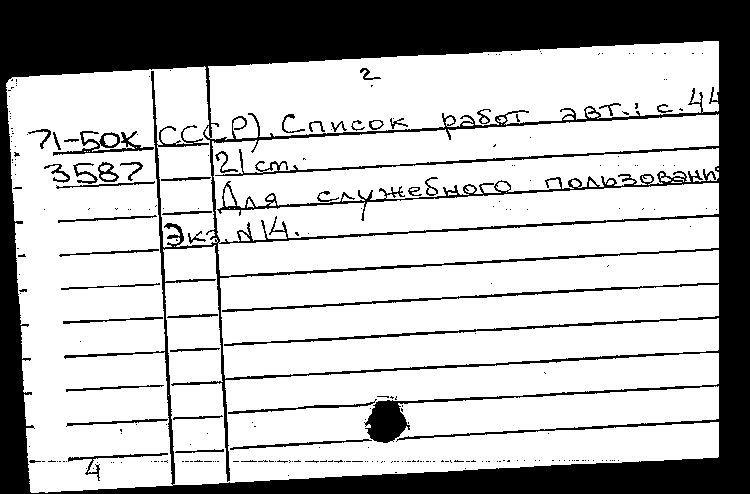 2
71-5ОК СССР). Список работ авт.: с.44
3587 21 см.
Для служебного пользовани
Экз. N14.
4